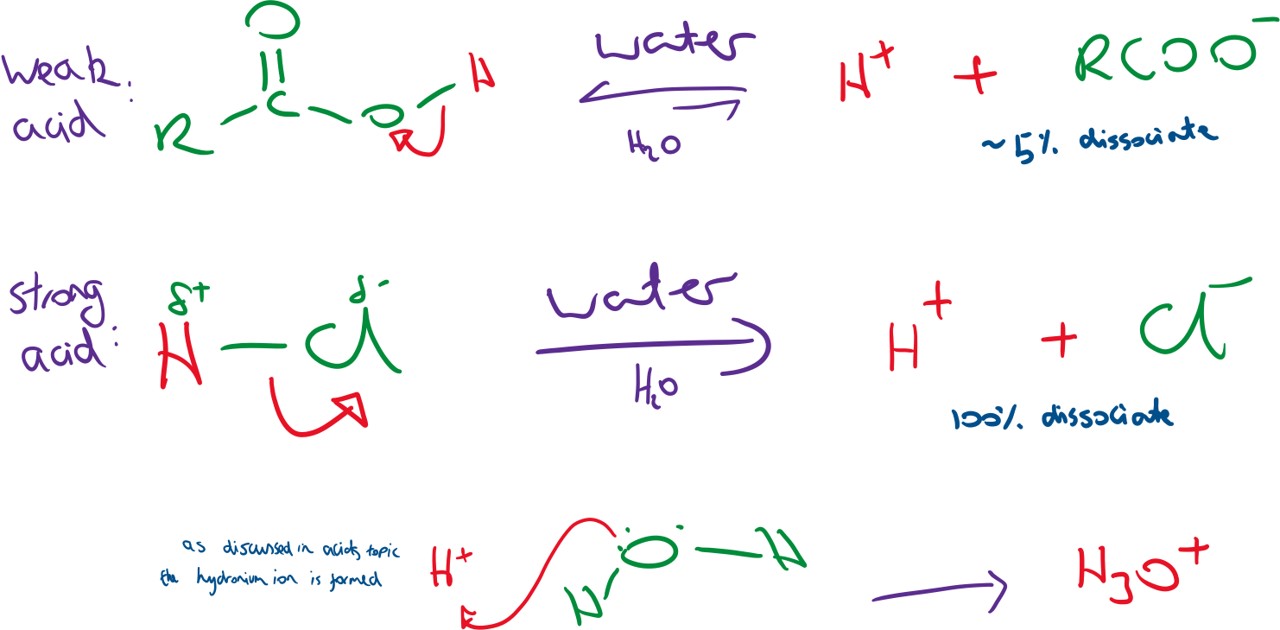 weak acid:
O
R C O H
water
H₂O
H⁺ + RCOO⁻
~5% dissociate
strong acid:
δ+ δ-
H — Cl
water
H₂O
H⁺ + Cl⁻
100% dissociate
as discussed in acids topic
the hydronium ion is formed
H⁺
O — H
H
H₃O⁺